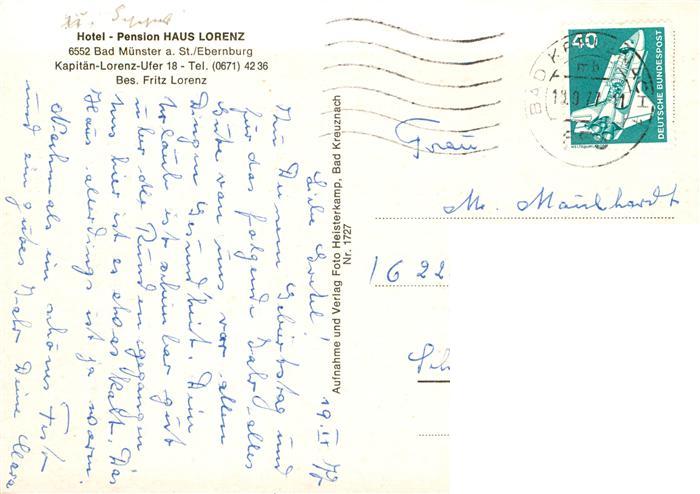 Hotel - Pension HAUS LORENZ
6552 Bad Münster a. St./Ebernburg
Kapitän-Lorenz-Ufer 18 - Tel. (0671) 42 36
Bes. Fritz Lorenz
Liebe Gretel! 19.
Zu Deinem Geburtstag und
für das folgende Jahr alles
Gute von uns vor allen
Dingen Gesundheit. Dein
Urlaub ist scheinbar gut
über die Runden gegangen
uns hier ist es etwas kalt. Das
Haus allerdings ist ja warm.
Nochmals ein schönes Fest
und ein gutes Jahr Deine Clara
Aufnahme und Verlag Foto Heisterkamp, Bad Kreuznach
Nr. 1727
40
DEUTSCHE BUNDESPOST
BAD KREUZNACH
Frau
M. Maukhardt
622
Sch